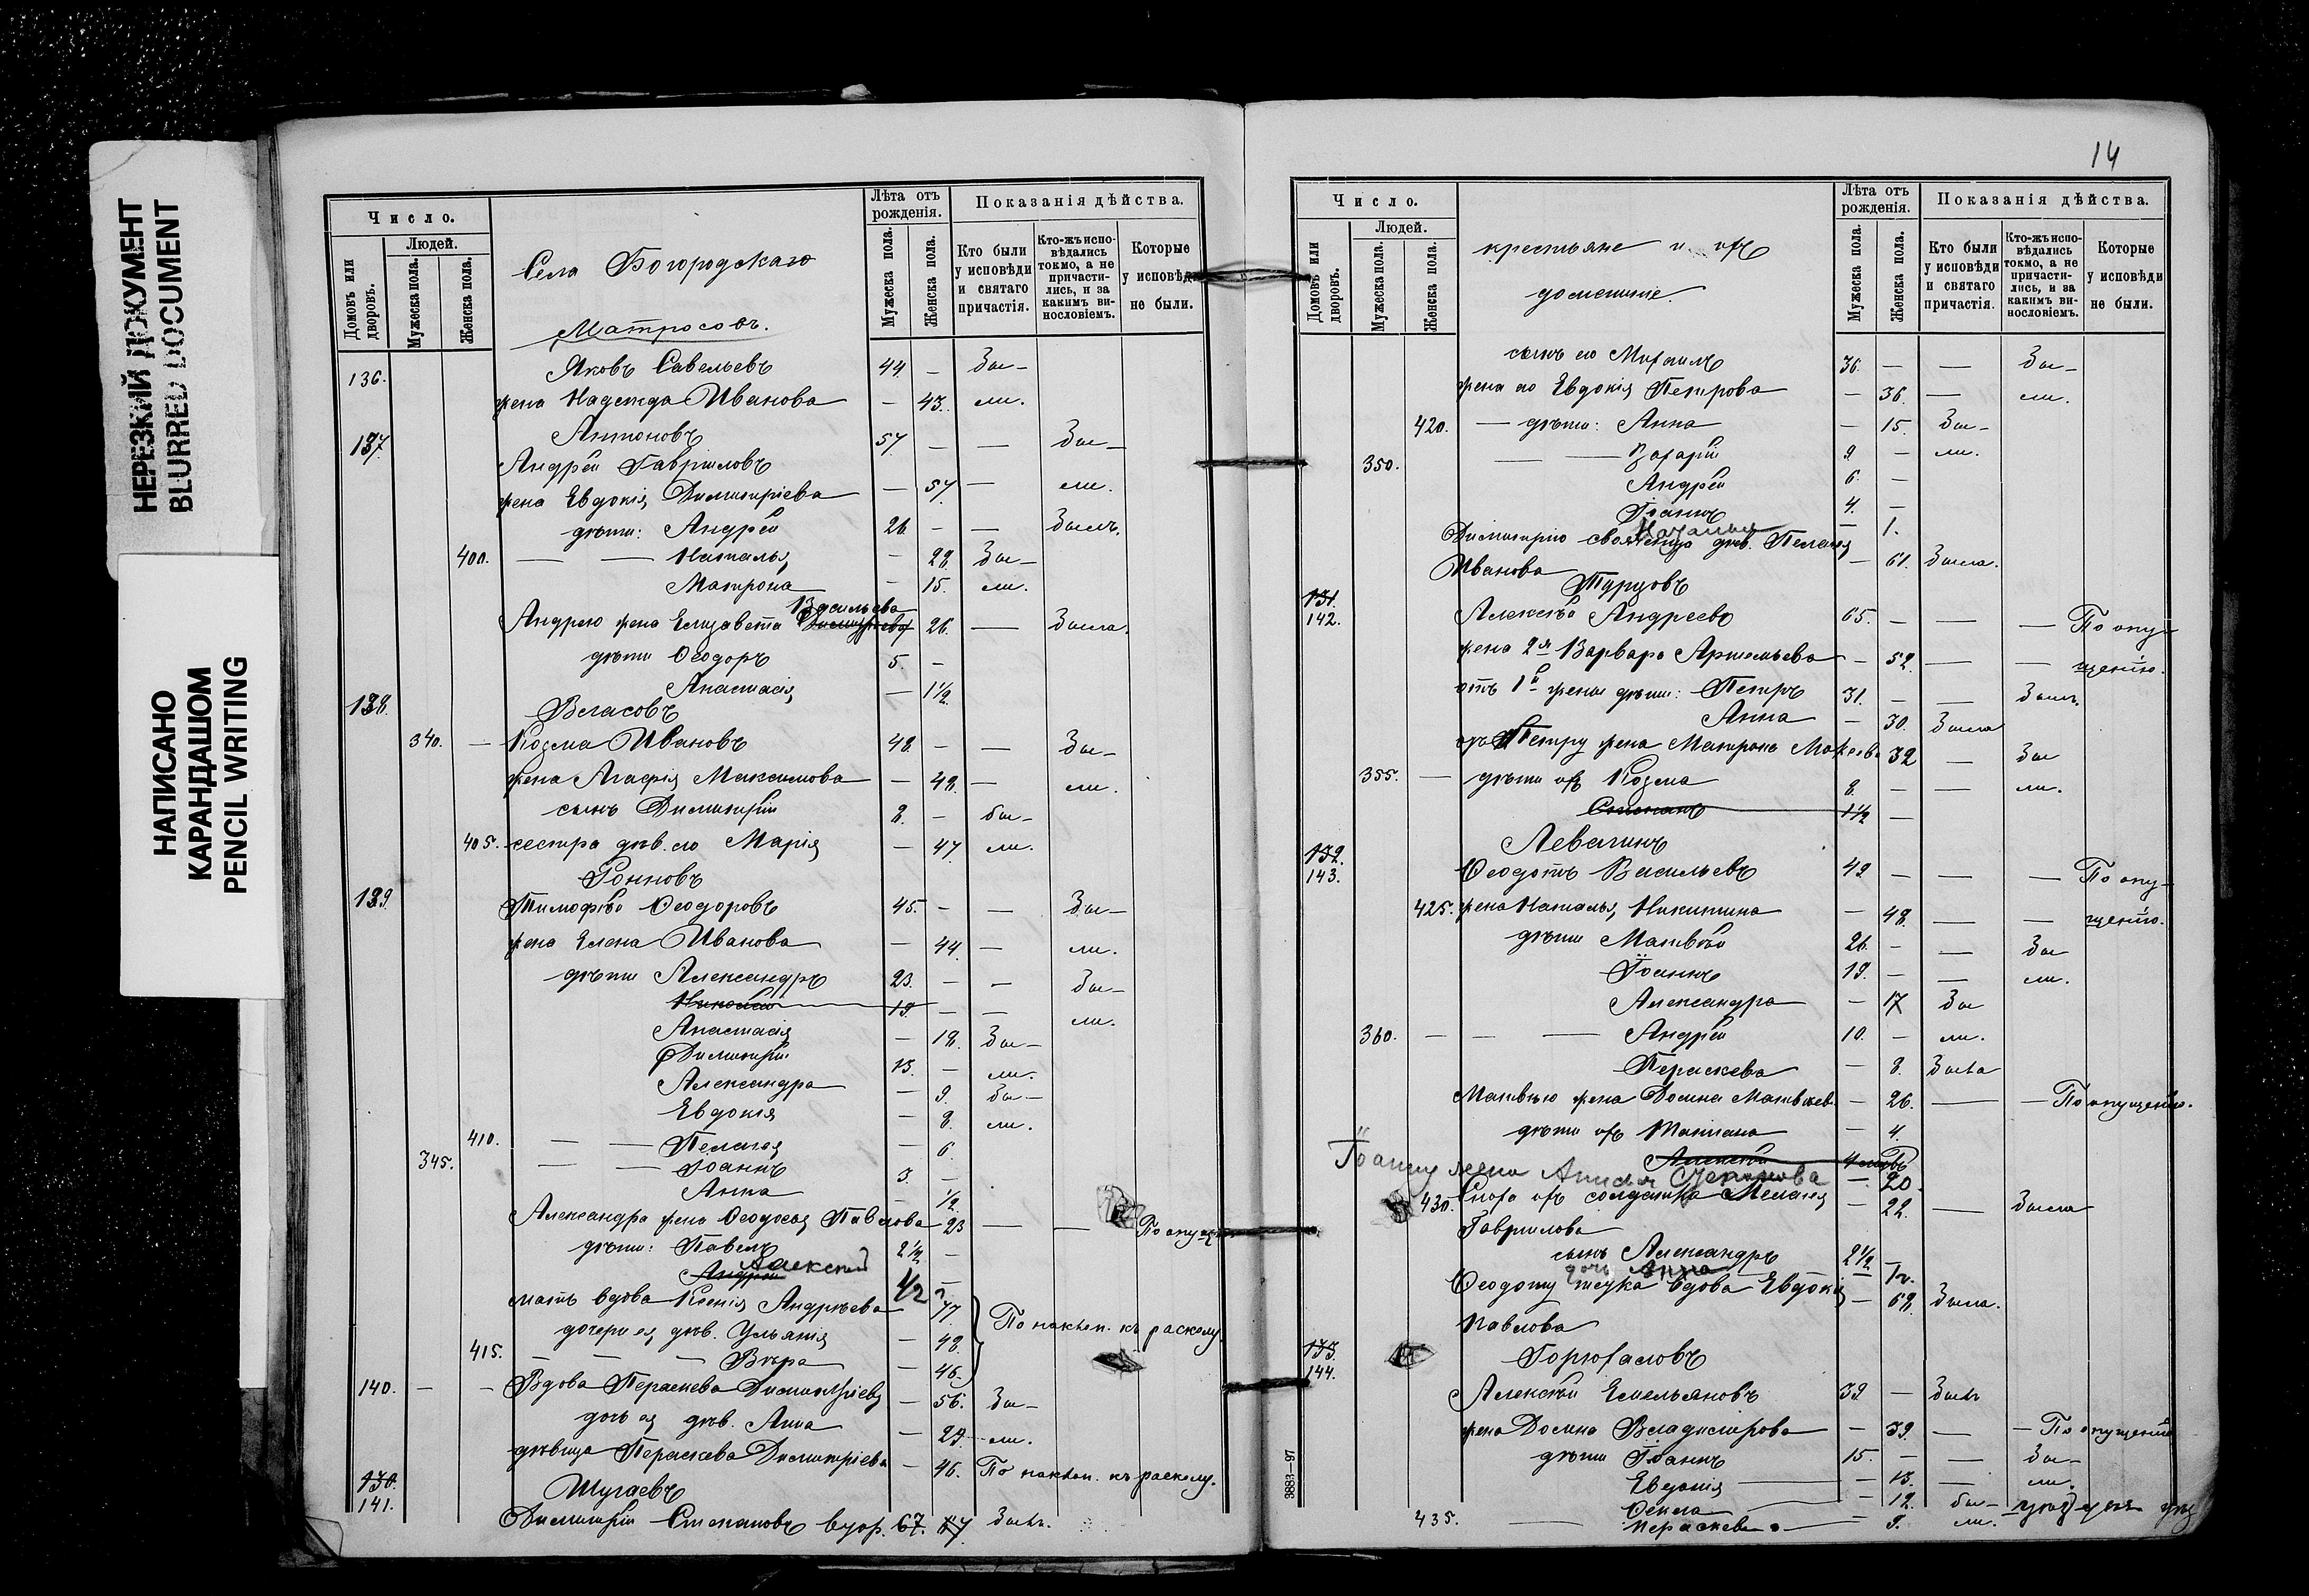 НЕРЕЗКИЙ ДОКУМЕНТ
BLURRED DOCUMENT
НАПИСАНО
КАРАНДАШОМ
PENCIL WRITING
Число.
Людей.
Домовъ или дворовъ.
Мужеска пола.
Женска пола.
Села Богородскаго
Лѣта отъ рожденія.
Мужеска пола.
Женска пола.
Показанія дѣйства.
Кто были у исповѣди и святаго причастія.
Кто-жъ исповѣдались токмо, а не причастились, и за какимъ винословіемъ.
Которые у исповѣди не были.
Матросовъ.
136. Яковъ Савельевъ 44. — Бы-
жена Надежда Иванова — 43. ли.
137. Антоновъ
Андрей Гавріиловъ 57 — — Бы-
жена Евдокія Димитріева — 57. — ли.
дѣти: Андрей 26. — — Былъ.
400. — — Наталья — 22. Бы-
Матрона — 15. ли.
Васильева
Андрею жена Елизавета Димитріева 26. — Была.
дѣти Ѳеодоръ 5. —
Анастасія — 1 1/2.
138. Власовъ
340. — Козма Ивановъ 48. — — Бы-
жена Агафія Максимова — 48. — ли.
сынъ Димитрій 8. — бы-
405. сестра дѣв. его Марія — 47. ли.
Гонновъ
139. Тимофѣй Ѳеодоровъ 45. — — Бы-
жена Елена Иванова — 44. — ли.
дѣти Александръ 23. — — Бы-
Николай 19. — — ли.
Анастасія — 18. Бы-
Димитрій 13. — ли.
Александра — 9. бы-
Евдокія — 8. ли.
410. — — Пелагея — 6.
345. — — Іоаннъ 3. —
Анна — 1/2.
Александра жена Ѳеодосья Павлова 23 — — По опущ
дѣти: Павелъ 2 1/2 —
Алексей
Андрей 1/2 —
мать вдова Ксенія Андреева 77
дочери ея дѣв. Ульянія — 48. По наклон. къ расколу.
415. — — Вѣра — 46.
140. — — Вдова Параскева Димитріева — 56. Бы-
дочь ея дѣв. Анна — 29. ли.
дѣвица Параскева Димитріева — 46. По наклон. къ расколу.
130.
141. Шугаевъ
Димитрій Стефановъ вдов. 67. 67. Былъ.
14
Число.
Людей.
Домовъ или дворовъ.
Мужеска пола.
Женска пола.
крестьяне и ихъ
домашніе.
Лѣта отъ рожденія.
Мужеска пола.
Женска пола.
Показанія дѣйства.
Кто были у исповѣди и святаго причастія.
Кто-жъ исповѣдались токмо, а не причастились, и за какимъ винословіемъ.
Которые у исповѣди не были.
сынъ его Михаилъ 36. — — Бы-
жена его Евдокія Петрова — 36. — ли.
420. — дѣти: Анна — 15. Бы-
350. — — Захарій 9 — ли.
Андрей 6. —
Іоаннъ 4. —
Наталья — 1.
Димитрію дѣв. Пелагея
Иванова — 61. Была.
131.
142. Турцовъ
Алексѣй Андреевъ 65. — — — По опу-
жена 2я Варвара Артемьева — 52. — — щенію.
отъ 1й жены дѣти: Петръ 31. — — Былъ.
Анна — 30. Была
Петру жена Матрона Мокеева 32 — Бы
355. — дѣти ихъ Козма 8. — — ли.
Степанъ 1 1/2 —
132.
143. Левагинъ
Ѳеодотъ Васильевъ 49 — — — По опу-
425. жена Наталья Никитина — 48. — — щенію.
дѣти Матвѣй 26. — — Бы
Іоаннъ 19. — — ли.
Александра — 17 Бы
360. — — — Андрей 10. — ли.
Параскева — 8. Была
Матвѣю жена Домна Матвѣев. — 26. — — По опущенію.
дѣти ихъ Татіана — 4.
Алексѣй
Іоанну жена Анисья — 20
430. Сноха ихъ солдатка Меланія — 22. — Была
Гавриилова
сынъ Александръ 2 1/2 —
дочь Анна —
Ѳеодоту тетка вдова Евдокія — 68. Была.
Павлова
133.
144. Горюхаловъ
Алексѣй Емельяновъ 39. — Былъ
жена Домна Владимірова — 39. — — По опущенію
дѣти Іоаннъ 15. — — Бы-
Евдокія — 13. — ли.
— 12. бы-
435. — Параскева — 9. ли.
3883—97